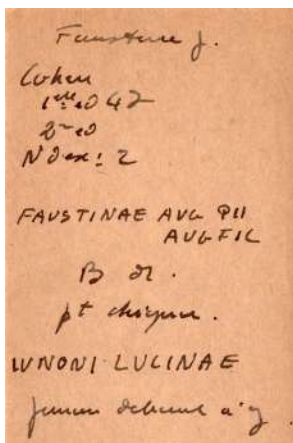 Faustine j.
Cohen
1ere ed 47
2me ed
N d ex: 2
FAUSTINAE AUG PII
AUG FIL
B dr.
pt chignon.
IUNONI LUCINAE
Junon debout à g